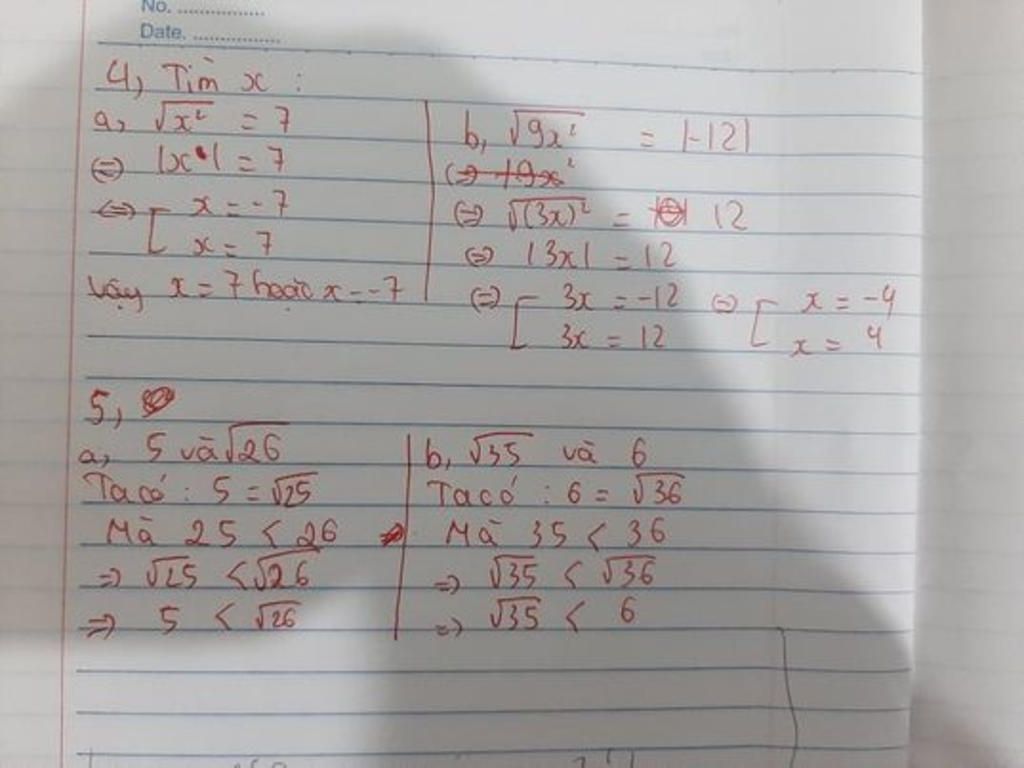 No. ................
Date. ................
4, Tìm x :
a, √x² = 7
⇔ |x| = 7
⇔ [ x = -7
x = 7
Vậy x = 7 hoặc x = -7
b, √9x² = |-12|
⇔ √(3x)² = 12
⇔ |3x| = 12
⇔ [ 3x = -12 ⇔ [ x = -4
3x = 12 x = 4
5,
a, 5 và √26
Ta có : 5 = √25
Mà 25 < 26
⇒ √25 < √26
⇒ 5 < √26
b, √35 và 6
Ta có : 6 = √36
Mà 35 < 36
⇒ √35 < √36
⇒ √35 < 6